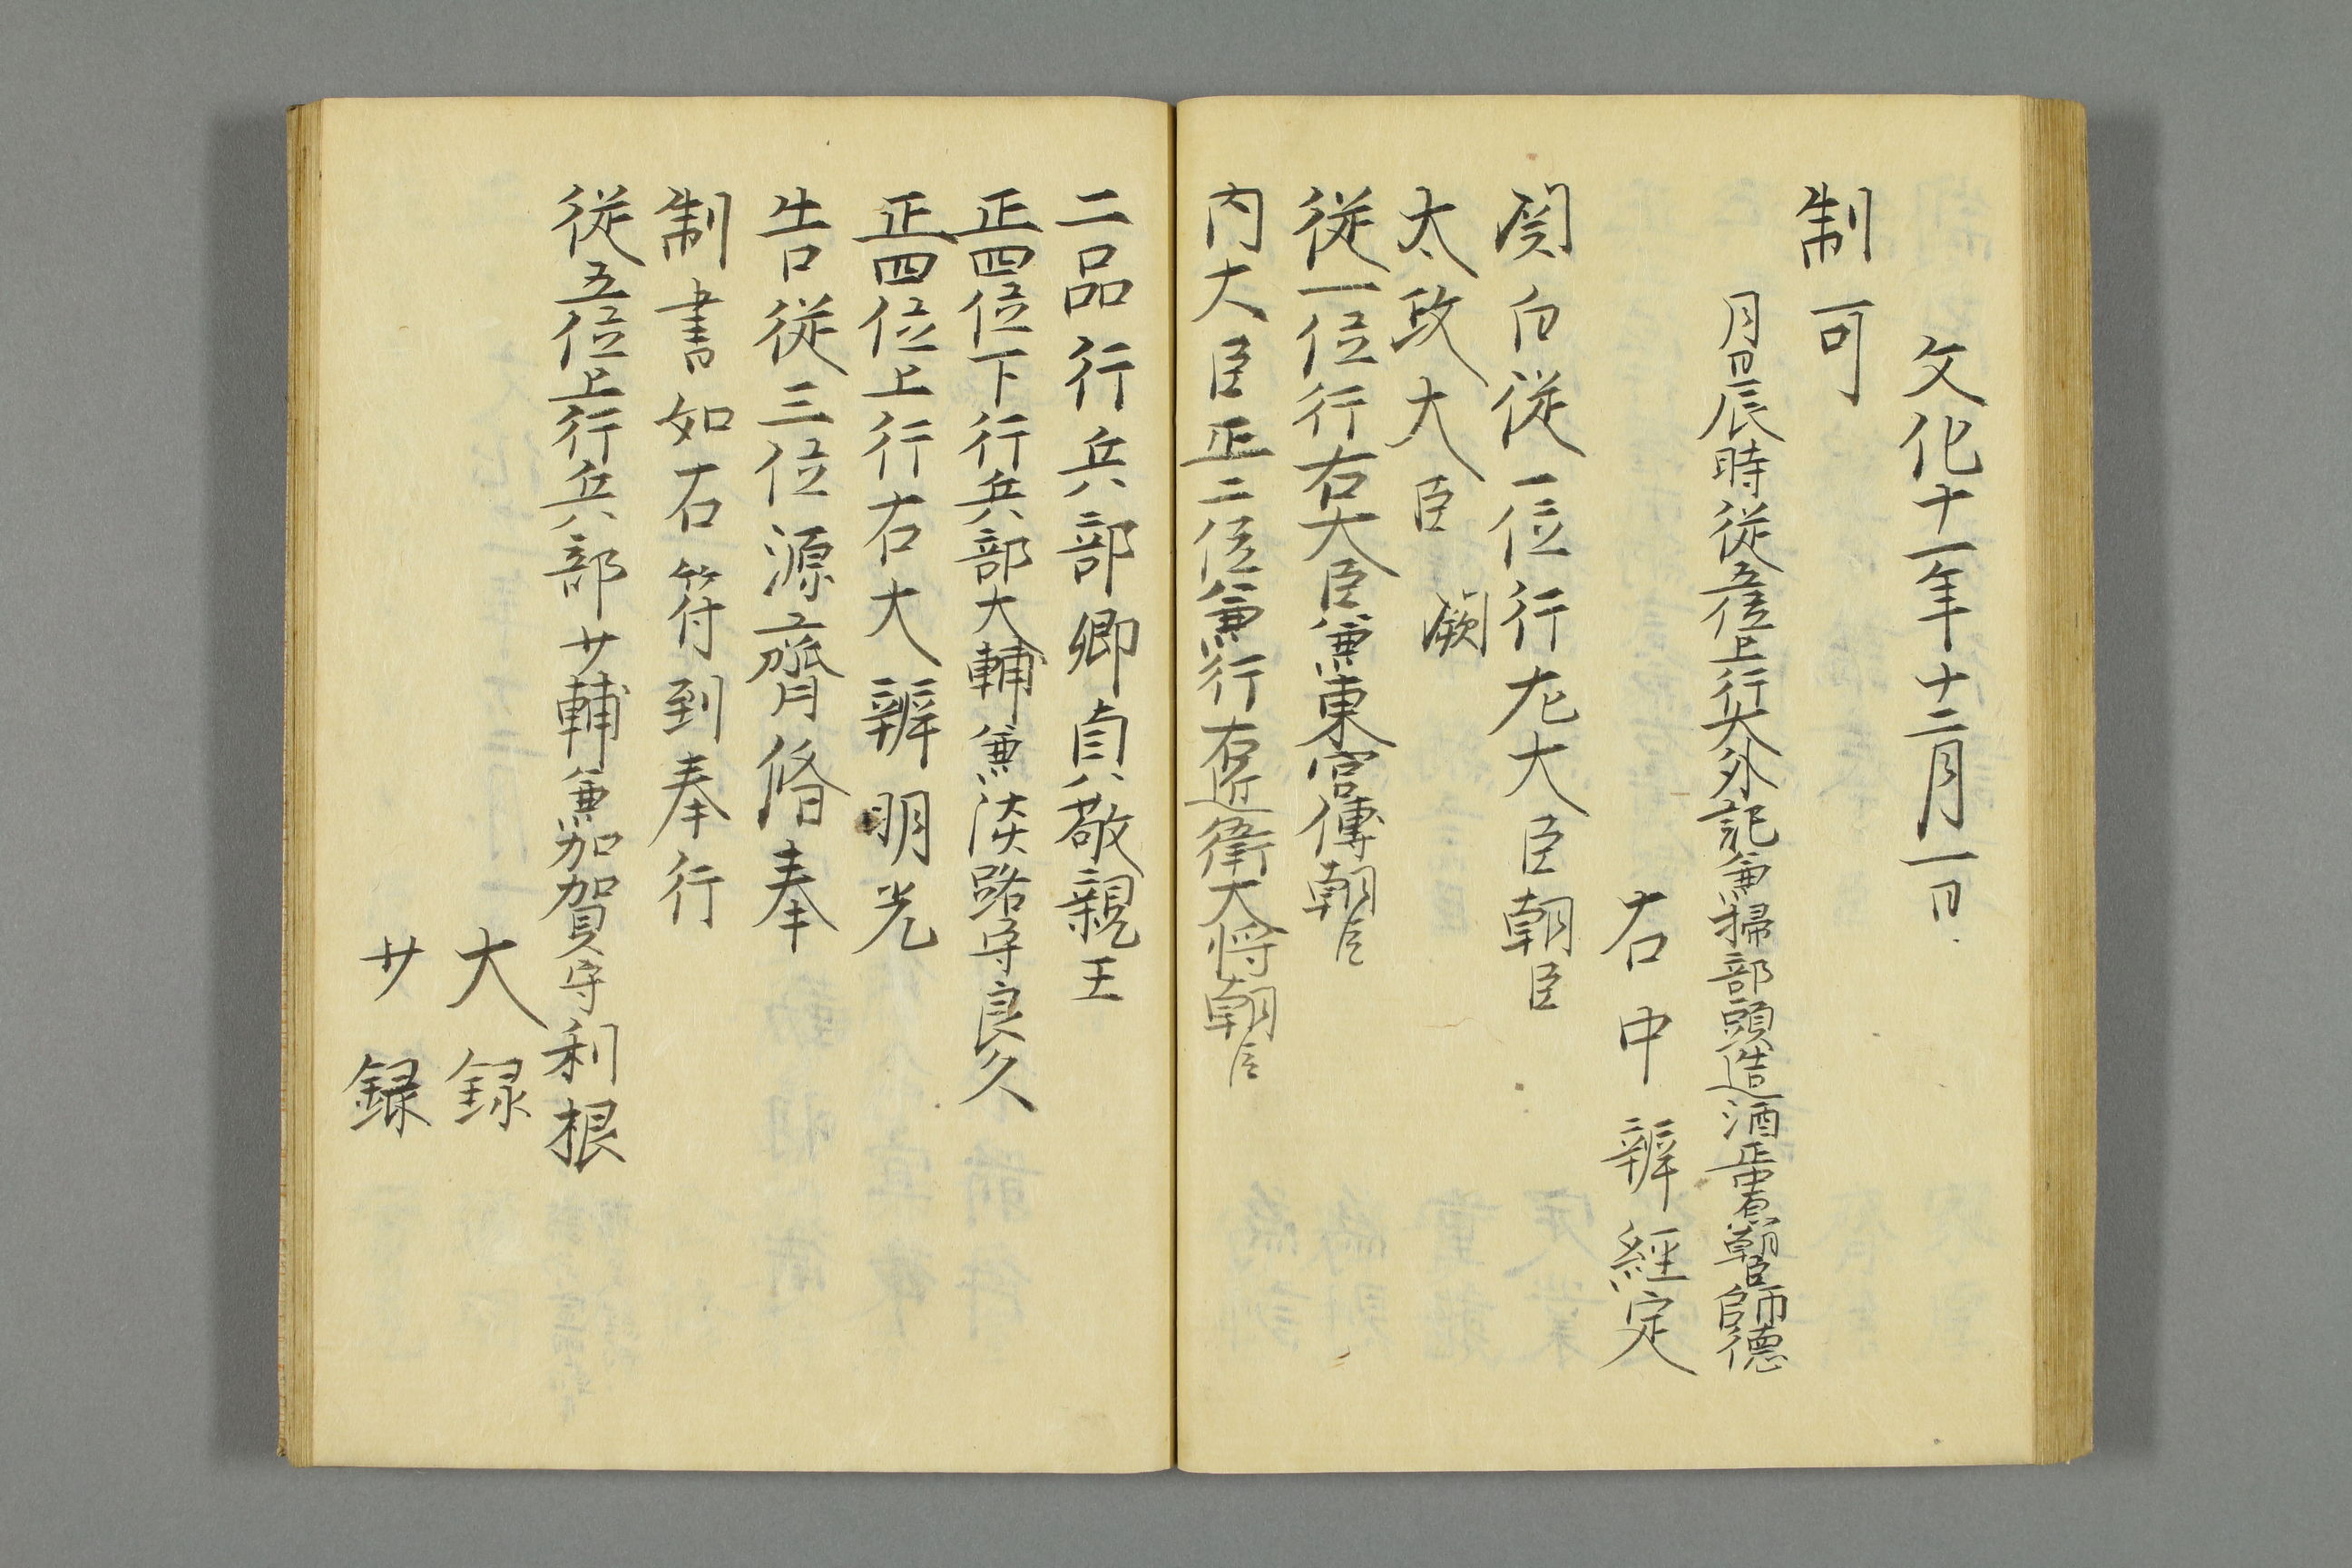 文化十一年十二月一日
制可
月日辰時従五位上行大外記兼掃部頭造酒正中原朝臣師徳
右中辨経定
関白従一位行左大臣朝臣
太政大臣　闕
従一位行右大臣兼東宮傅朝臣
内大臣正二位兼行右近衛大将朝臣
二品行兵部卿貞敬親王
正四位下行兵部大輔兼淡路守良久
正四位上行右大辨明光
告従三位源齊脩奉
制書如右符到奉行
従五位上行兵部少輔兼加賀守利根
大録
少録